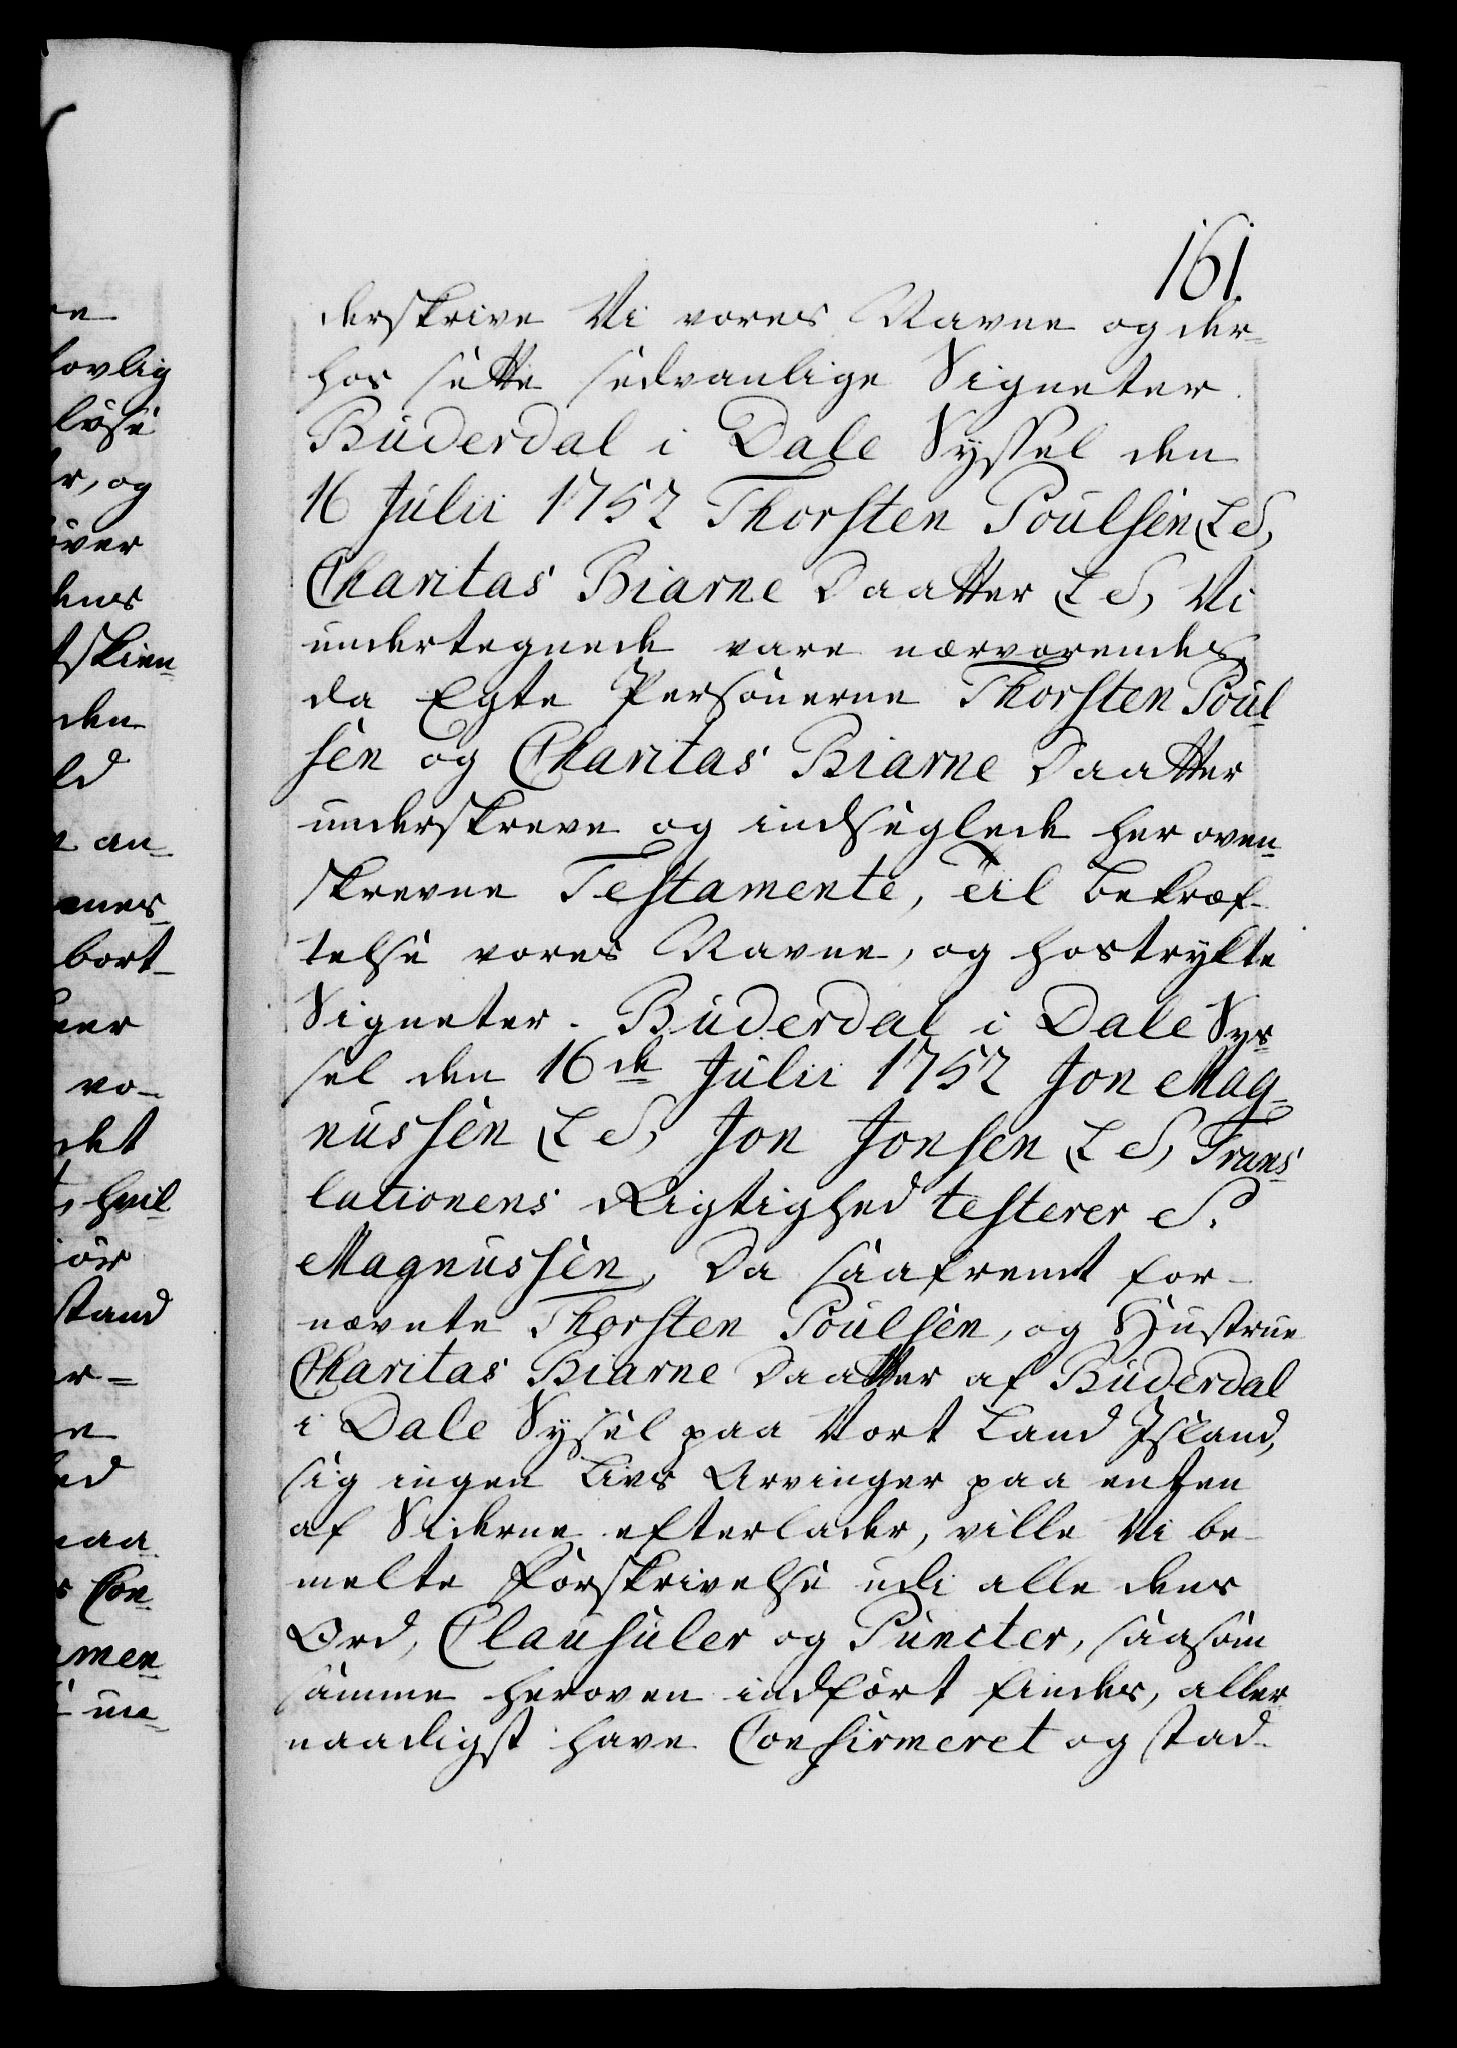 161.
derskrive Vi vores Navne og der-
hos sætte sædvanlige Signeter.
Buderdal i Dale Syssel den
16 Julii 1752 Thorsten Poulsen L S,
Charitas Biarne Daatter L S, Vi
undertegnede vare nærværendes,
da Egte Personerne Thorsten Poul-
sen og Charitas Biarne Daatter
underskreve og indseglede her oven-
skrevne Testamente, til Bekræf-
telse vores Navne, og hostrykte
Signeter. Buderdal i Dale Sys-
sel den 16de Julii 1752 Jon Mag-
nussen L S, Jon Jonsen L S, Trans-
lationens Rigtighed testerer S.
Magnussen, Da saafremt for-
nævnte Thorsten Poulsen, og Hustrue
Charitas Biarne Daatter af Buderdal
i Dale Sysel paa Vort Land Island,
sig ingen Livs Arvinger paa enten
af Siderne efterlader, ville Vi be-
melte Forskrivelse udi alle dens
Ord, Clausuler og Puncter, saasom
samme heroven indført findes, aller-
naadigst have Confirmeret og stad-